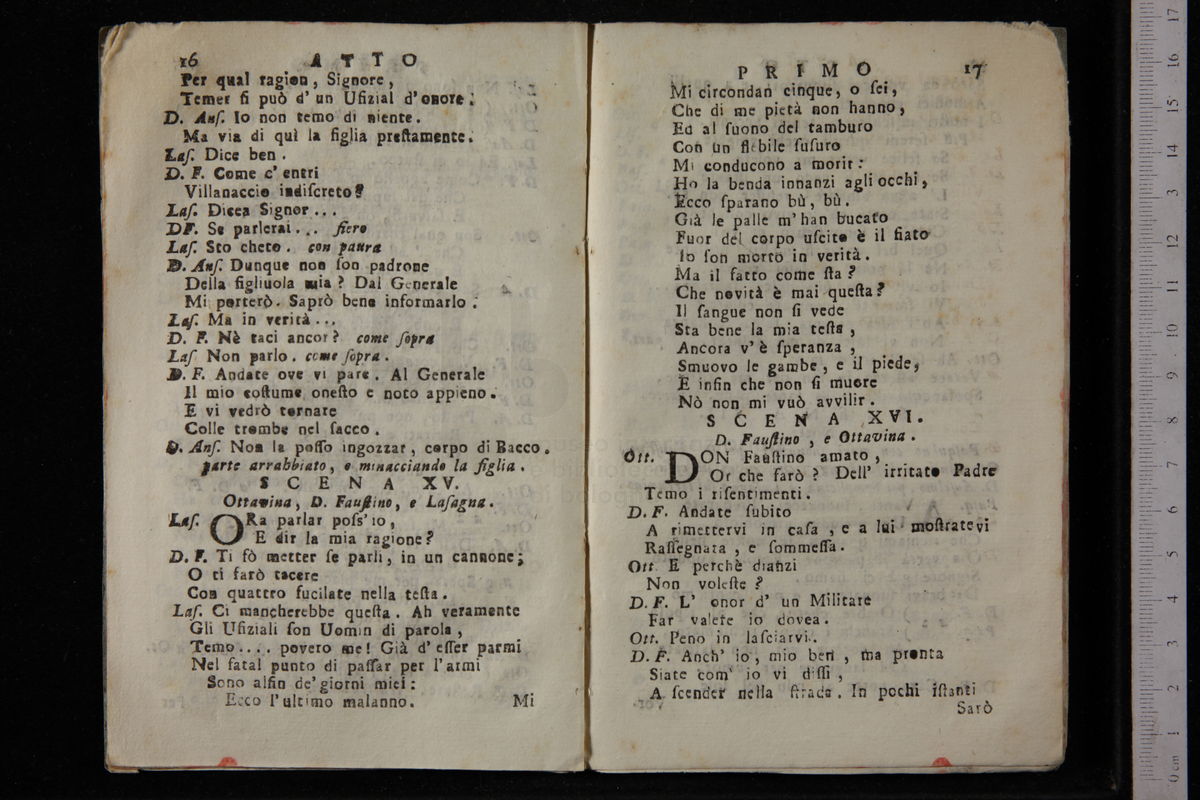 16 ATTO
Per qual ragion, Signore,
Temer ſi può d' un Ufizial d'onore.
D. Anſ. Io non temo di niente.
Ma via di quì la figlia preſtamente.
Laſ. Dice ben.
D. F. Come c' entri
Villanaccio indiſcreto?
Laſ. Dicea Signor...
DF. Se parlerai... fiero
Laſ. Sto cheto. con paura
D. Anſ. Dunque non ſon padrone
Della figliuola mia? Dal Generale
Mi porterò. Saprò bene informarlo.
Laſ. Ma in verità...
D. F. Nè taci ancor? come ſopra
Laſ Non parlo. come ſopra.
D. F. Andate ove vi pare. Al Generale
Il mio coſtume oneſto e noto appieno.
E vi vedrò tornare
Colle trombe nel ſacco.
D. Anſ. Non la poſſo ingozzar, corpo di Bacco.
parte arrabbiato, e minacciando la figlia.
SCENA XV.
Ottavina, D. Fauſtino, e Laſagna.
Laſ. ORa parlar poſs' io,
E dir la mia ragione?
D. F. Ti fò metter ſe parli, in un cannone;
O ti farò tacere
Con quattro fucilate nella teſta.
Laſ. Ci mancherebbe queſta. Ah veramente
Gli Ufiziali ſon Uomin di parola,
Temo.... povero me! Già d' eſſer parmi
Nel fatal punto di paſſar per l'armi
Sono alfin de' giorni miei:
Ecco l'ultimo malanno.
Mi
PRIMO 17
Mi circondan cinque, o ſei,
Che di me pietà non hanno,
Ed al ſuono del tamburo
Con un flebile ſuſuro
Mi conducono a morir:
Ho la benda innanzi agli occhi,
Ecco ſparano bù, bù.
Già le palle m' han bucato
Fuor del corpo uſcito è il fiato
Io ſon morto in verità.
Ma il fatto come ſta?
Che novità è mai queſta?
Il ſangue non ſi vede
Sta bene la mia teſta,
Ancora v' è ſperanza,
Smuovo le gambe, e il piede,
E infin che non ſi muore
Nò non mi vuò avvilir.
SCENA XVI.
D. Fauſtino, e Ottavina.
Ott. DON Fauſtino amato,
Or che farò? Dell' irritato Padre
Temo i riſentimenti.
D. F. Andate ſubito
A rimettervi in caſa, e a lui moſtratevi
Raſſegnata, e ſommeſſa.
Ott. E perchè dianzi
Non voleſte?
D. F. L' onor d' un Militare
Far valere io dovea.
Ott. Peno in laſciarvi.
D. F. Anch' io, mio ben, ma pronta
Siate com' io vi diſſi,
A ſcender nella ſtrada. In pochi iſtanti
Sarò